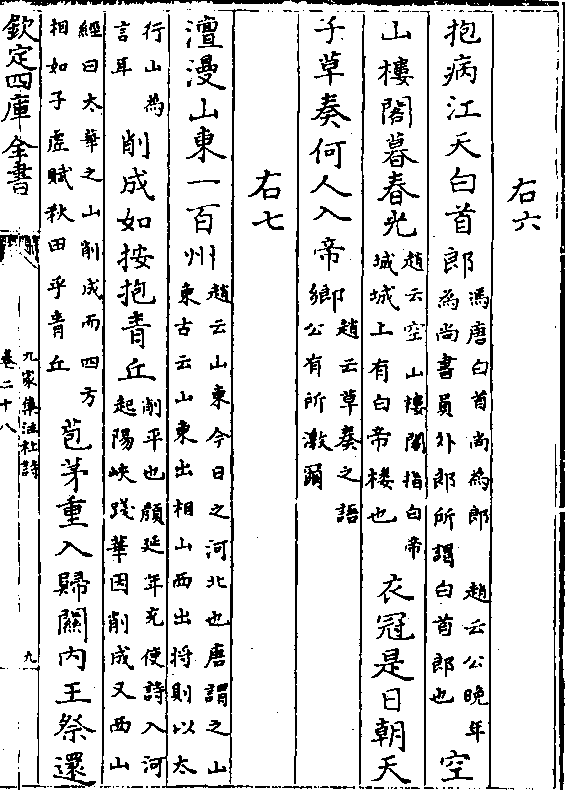 右六
抱病江天白首郎馮唐白首尚為郎趙云公晚年為尚書員外郎所謂白首郎也空
山樓閣暮春光趙云空山樓閣指白帝城城上有白帝樓也衣冠是日朝天
子草奏何人入帝鄉趙云草奏之語公有所激爾
右七
澶漫山東一百州趙云山東今日之河北也唐謂之山東古云山東出相山西出將則以太
行山為言耳削成如按抱青丘削平也顏延年充使詩入河起陽峽踐華因削成又西山
經曰太華之山削成而四方相如子虛賦秋田乎青丘苞茅重入歸關内王祭還
欽定四庫全書
九家集注杜詩
卷二十八
九